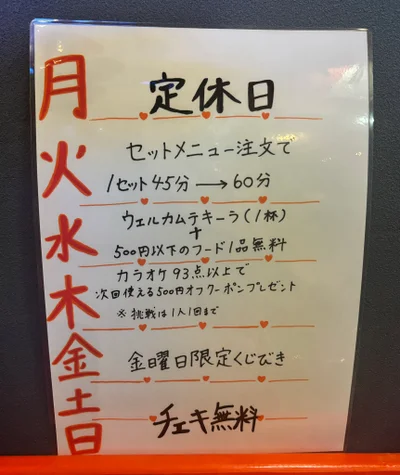 月 定休日
火 セットメニュー注文で
1セット45分→60分
水 ウェルカムテキーラ(1杯)
+
500円以下のフード1品無料
木 カラオケ93点以上で
次回使える500円オフクーポンプレゼント
※挑戦は1人1回まで
金 金曜日限定くじびき
土日 チェキ無料